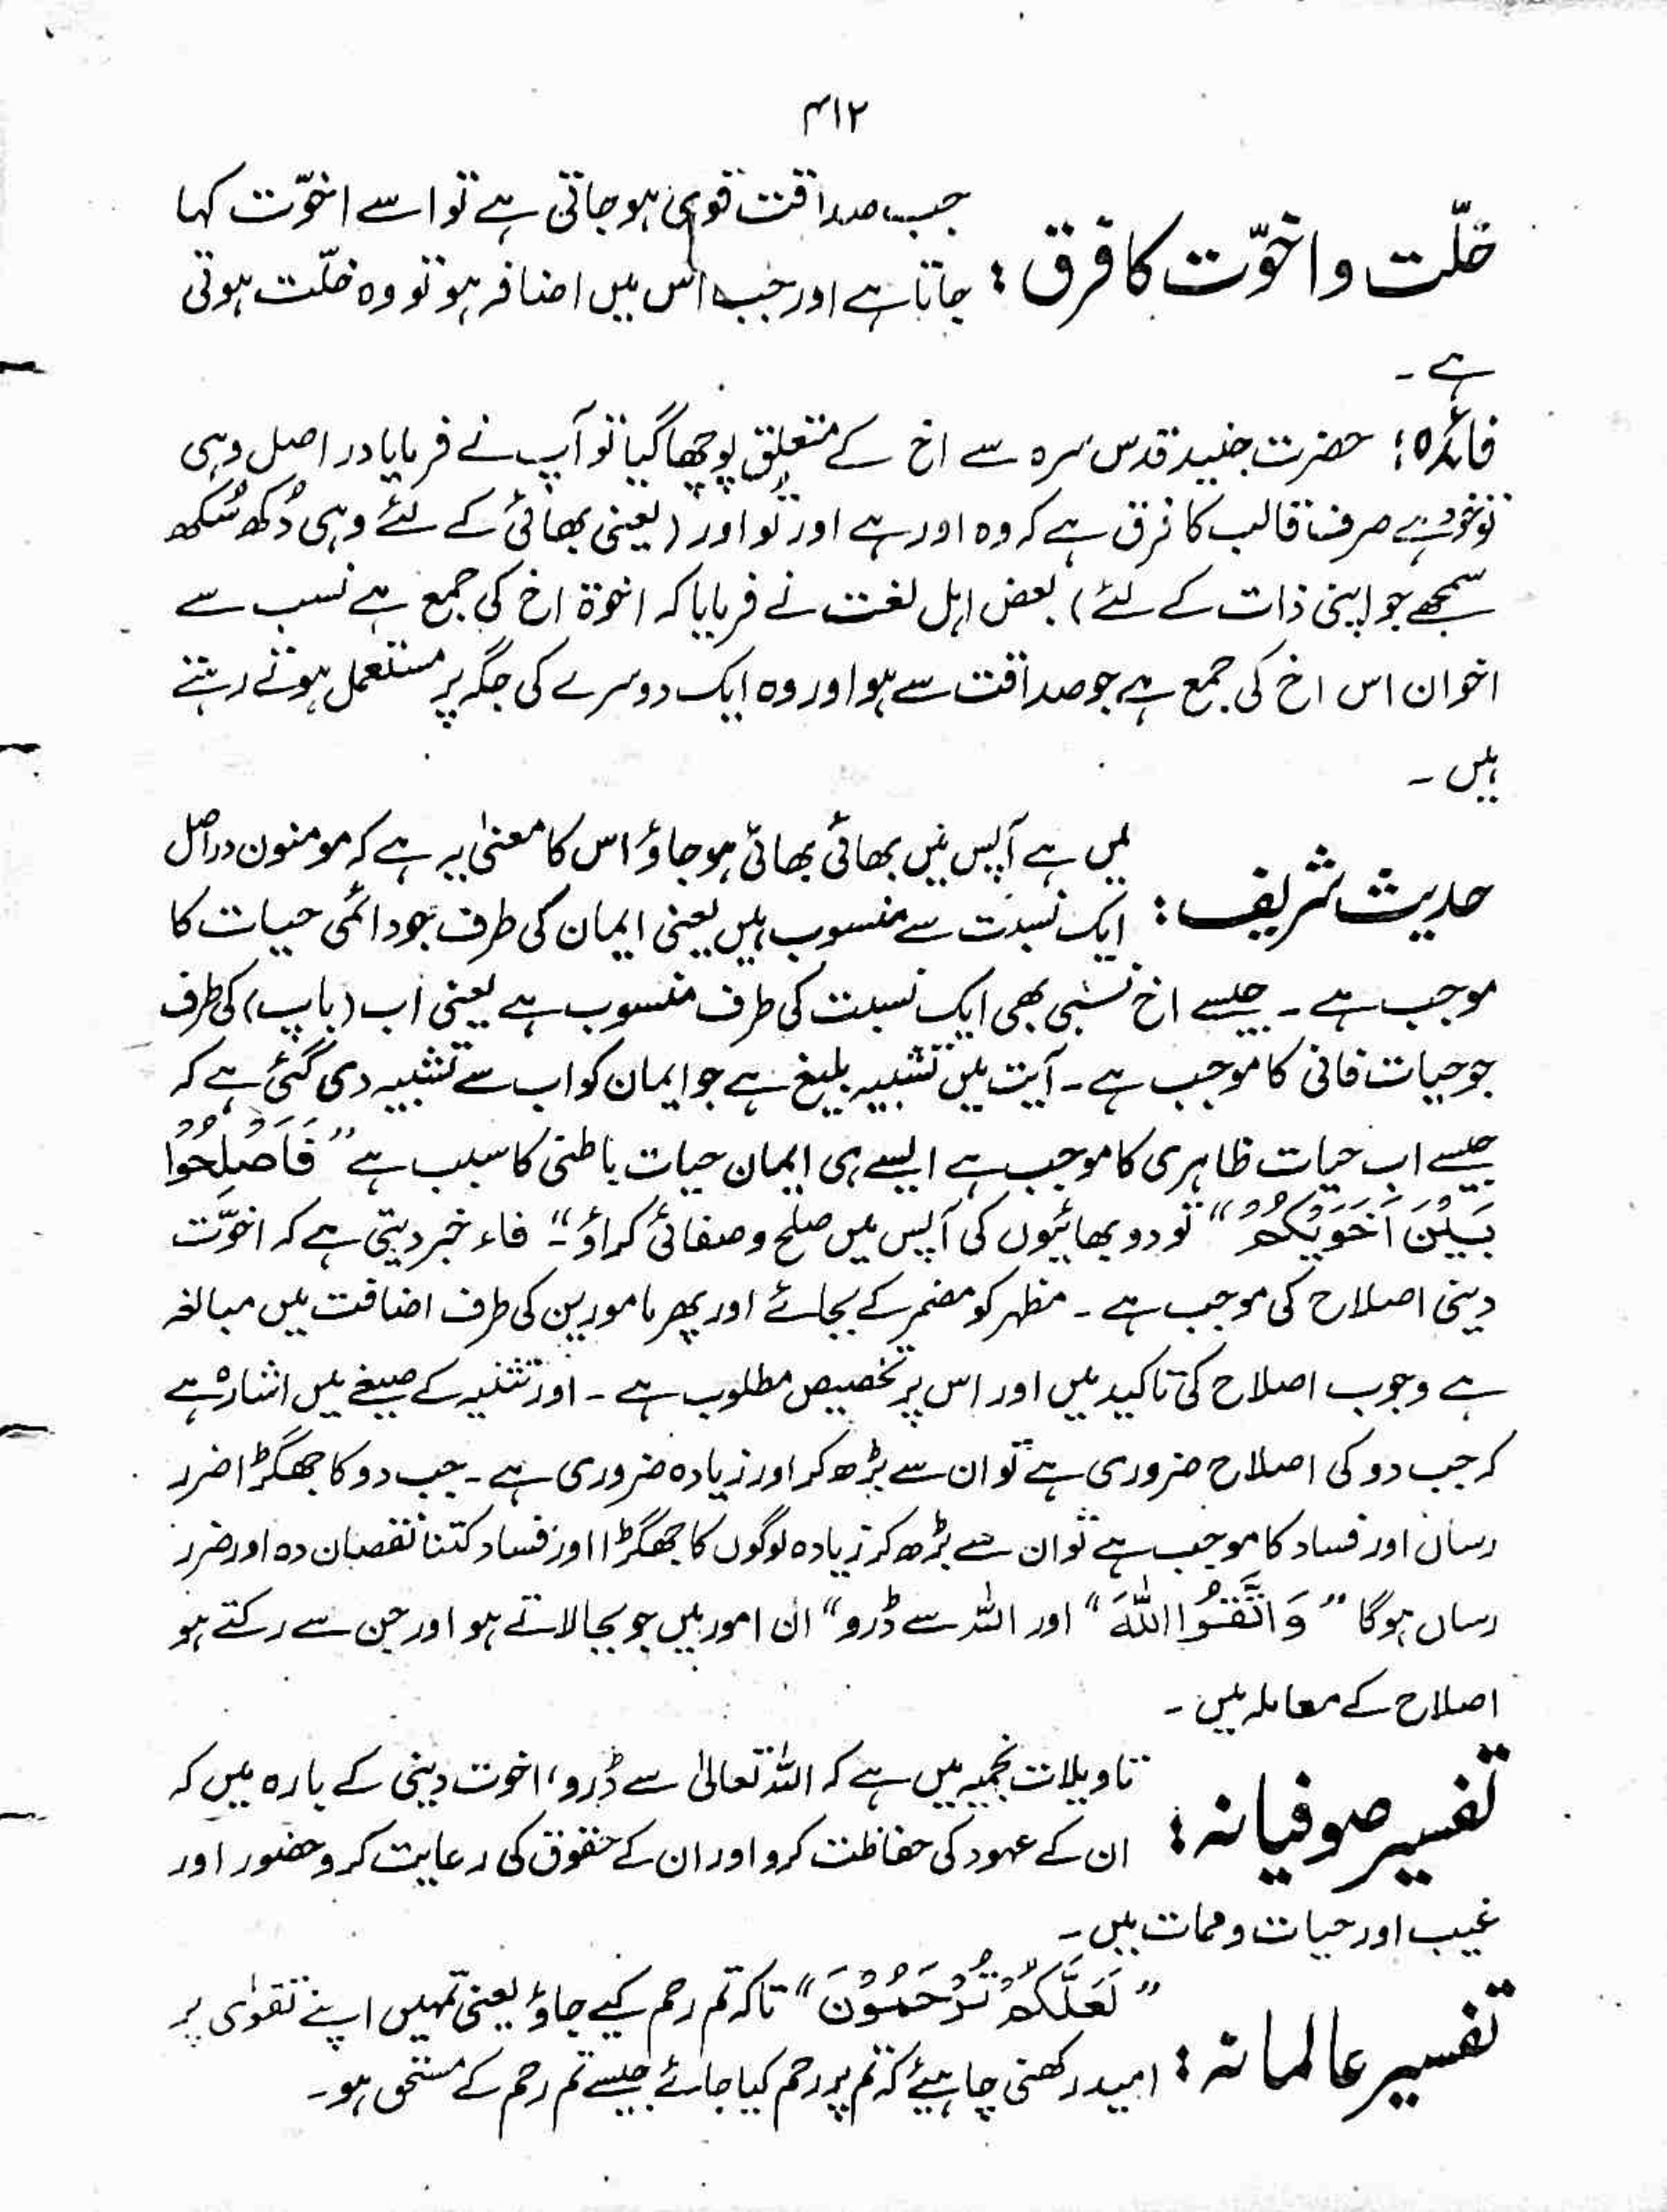 ۴۱۲
خلّت و اخوّت کا فرق : جب صداقت قوی ہو جاتی ہے تو اسے اخوّت کہا
جاتا ہے اور جب اس میں اضافہ ہو تو وہ خلّت ہوتی
ہے ۔
فائدہ : حضرت جنید قدس سرہ سے اخ کے متعلق پوچھا گیا تو آپ نے فرمایا در اصل وہی
تو خود ہے صرف قالب کا فرق ہے کہ وہ اور ہے اور تُو اور (یعنی بھائی کے لئے وہی دُکھ سُکھ
سمجھے جو اپنی ذات کے لئے) بعض اہل لغت نے فرمایا کہ اخوۃ اخ کی جمع ہے نسب سے
اخوان اس اخ کی جمع ہے جو صداقت سے ہو اور وہ ایک دوسرے کی جگہ پر مستعمل ہوتے رہتے
ہیں ۔
حدیث شریف : میں ہے آپس میں بھائی بھائی ہو جاؤ اس کا معنیٰ یہ ہے کہ مومنون دراصل
ایک نسبت سے منسوب ہیں یعنی ایمان کی طرف جو دائمی حیات کا
موجب ہے ۔ جیسے اخ نسبی بھی ایک نسبت کی طرف منسوب ہے یعنی اب (باپ) کی طرف
جو حیات فانی کا موجب ہے ۔ آیت میں تشبیہ بلیغ ہے جو ایمان کو اب سے تشبیہ دی گئی ہے کہ
جیسے اب حیات ظاہری کا موجب ہے ایسے ہی ایمان حیات باطنی کا سبب ہے ”فَاَصْلِحُوْا
بَیْنَ اَخَوَیْکُمْ“ تو دو بھائیوں کی آپس میں صلح و صفائی کراؤ“۔ فاء خبر دیتی ہے کہ اخوّت
دینی اصلاح کی موجب ہے ۔ مظہر کو مضمر کے بجائے اور پھر مامورین کی طرف اضافت میں مبالغہ
ہے وجوب اصلاح کی تاکید میں اور اس پر تخصیص مطلوب ہے ۔ اور تثنیہ کے صیغے میں اشارہ ہے
کہ جب دو کی اصلاح ضروری ہے تو ان سے بڑھ کر اور زیادہ ضروری ہے ۔ جب دو کا جھگڑا ضرر
رساں اور فساد کا موجب ہے تو ان سے بڑھ کر زیادہ لوگوں کا جھگڑا اور فساد کتنا نقصان دہ اور ضرر
رساں ہوگا ” وَ اتَّقُوا اللّٰہَ “ اور اللہ سے ڈرو“ ان امور میں جو بجا لاتے ہو اور جن سے رکتے ہو
اصلاح کے معاملہ میں ۔
تفسیر صوفیانہ : تاویلات نجمیہ میں ہے کہ اللہ تعالیٰ سے ڈرو، اخوت دینی کے بارہ میں کہ
ان کے عہود کی حفاظت کرو اور ان کے حقوق کی رعایت کرو حضور اور
غیب اور حیات و ممات میں ۔
تفسیر عالمانہ : ” لَعَلَّکُمْ تُرْحَمُوْنَ “ تاکہ تم رحم کیے جاؤ یعنی تمہیں اپنے تقوٰی پر
امید رکھنی چاہیئے کہ تم پر رحم کیا جائے جیسے تم رحم کے مستحق ہو۔